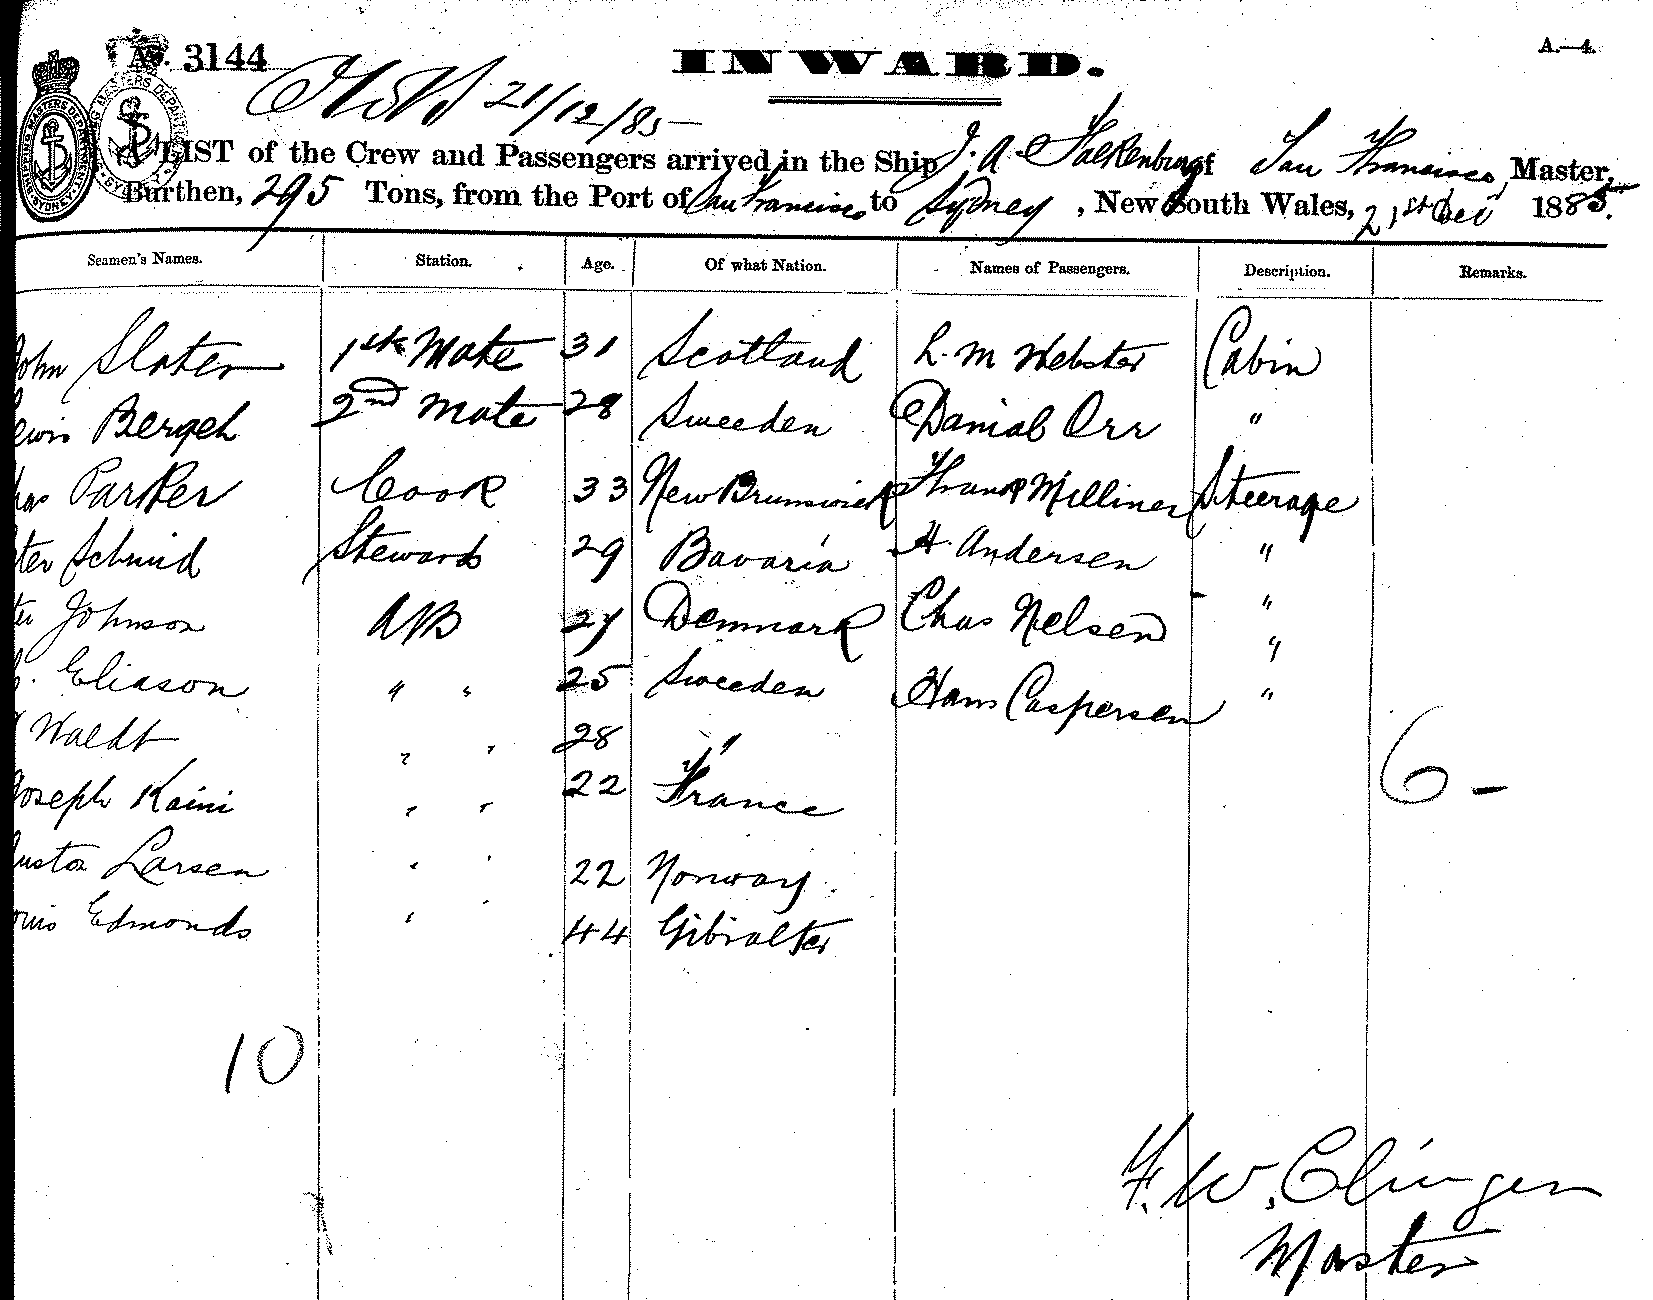 No. 3144
INWARD.
A.—4.
21/12/85
A LIST of the Crew and Passengers arrived in the Ship J. A. Falkenburg of San Francisco, Master,
Burthen, 295 Tons, from the Port of San Francisco to Sydney, New South Wales, 21st Dec 1885.
Seamen's Names. Station. Age. Of what Nation. Names of Passengers. Description. Remarks.
John Slater 1st Mate 31 Scotland L. M Webster Cabin
ewis Bergeh 2nd Mate 28 Sweeden Danial Orr "
has Parker Cook 33 New Brunswick Frank Milliner Steerage
ter Schmid Steward 29 Bavaria A Andersen "
ter Johnson AB 27 Denmark Chas Nelsen "
Eliason " " 25 Sweeden Hans Caspersen "
Waldt " " 28 "
Joseph Kaini " " 22 France
6 -
ustav Larsen " " 22 Norway
ouis Edmonds " " 44 Gibralter
10
F. W. Clinger
Master